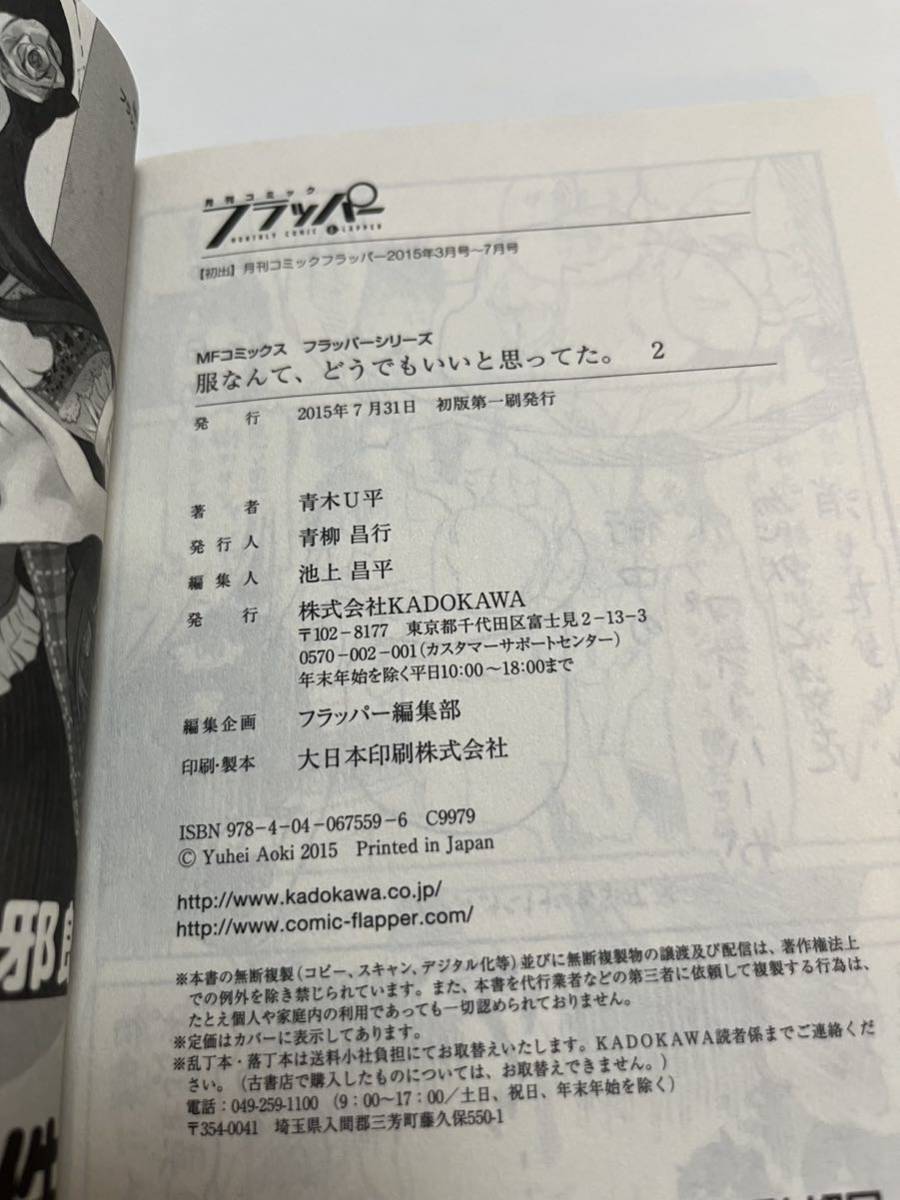 月刊コミック
フラッパー
MONTHLY COMIC FLAPPER
【初出】月刊コミックフラッパー2015年3月号〜7月号
MFコミックス　フラッパーシリーズ
服なんて、どうでもいいと思ってた。　2
発　行　2015年7月31日　初版第一刷発行
著　者　青木U平
発行人　青柳 昌行
編集人　池上 昌平
発　行　株式会社KADOKAWA
〒102-8177　東京都千代田区富士見2-13-3
0570-002-001（カスタマーサポートセンター）
年末年始を除く平日10:00〜18:00まで
編集企画　フラッパー編集部
印刷・製本　大日本印刷株式会社
ISBN 978-4-04-067559-6　C9979
© Yuhei Aoki 2015　Printed in Japan
http://www.kadokawa.co.jp/
http://www.comic-flapper.com/
※本書の無断複製（コピー、スキャン、デジタル化等）並びに無断複製物の譲渡及び配信は、著作権法上
での例外を除き禁じられています。また、本書を代行業者などの第三者に依頼して複製する行為は、
たとえ個人や家庭内の利用であっても一切認められておりません。
※定価はカバーに表示してあります。
※乱丁本・落丁本は送料小社負担にてお取替えいたします。KADOKAWA読者係までご連絡くだ
さい。（古書店で購入したものについては、お取替えできません。）
電話：049-259-1100（9：00〜17：00／土日、祝日、年末年始を除く）
〒354-0041　埼玉県入間郡三芳町藤久保550-1
邪